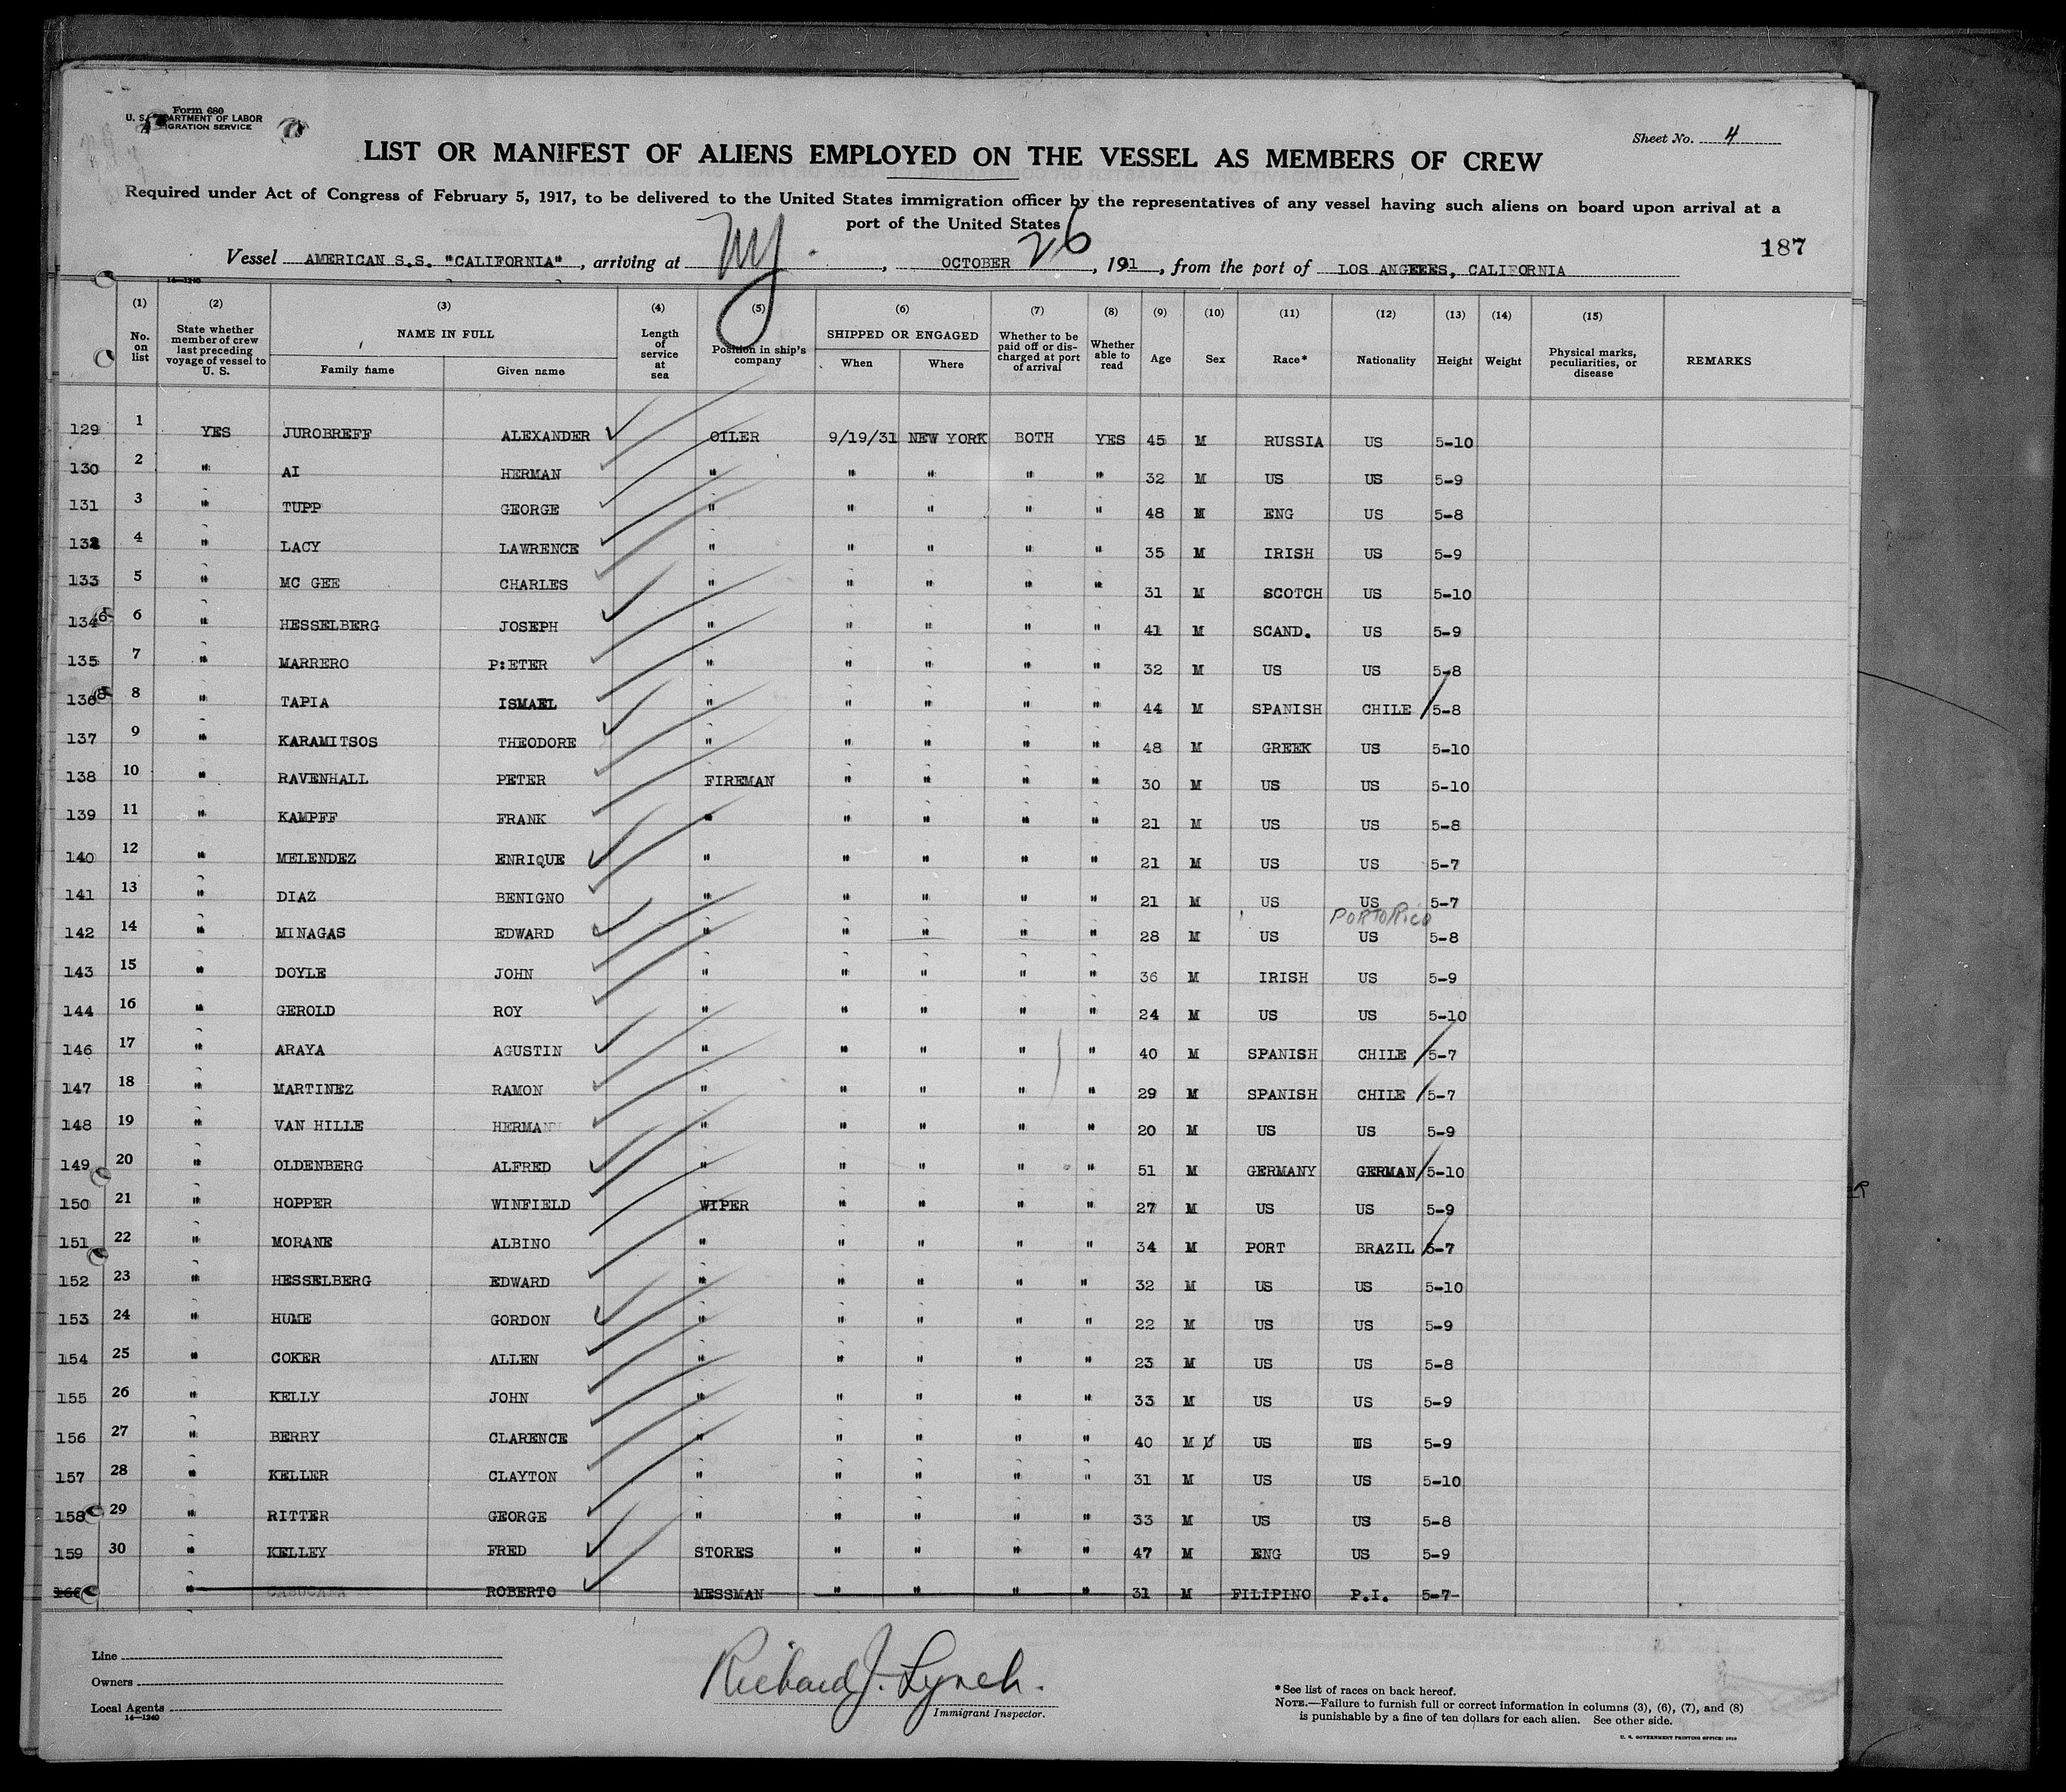 Form 680
U. S. DEPARTMENT OF LABOR
IMMIGRATION SERVICE
Sheet No. 4
LIST OR MANIFEST OF ALIENS EMPLOYED ON THE VESSEL AS MEMBERS OF CREW
Required under Act of Congress of February 5, 1917, to be delivered to the United States immigration officer by the representatives of any vessel having such aliens on board upon arrival at a
port of the United States
187
Vessel AMERICAN S.S. "CALIFORNIA", arriving at NY., OCTOBER 26, 191, from the port of LOS ANGELES, CALIFORNIA
14—1240
(1) (2) (3) (4) (5) (6) (7) (8) (9) (10) (11) (12) (13) (14) (15)
No. on list State whether member of crew last preceding voyage of vessel to U. S. NAME IN FULL Family name Given name Length of service at sea Position in ship's company SHIPPED OR ENGAGED When Where Whether to be paid off or discharged at port of arrival Whether able to read Age Sex Race* Nationality Height Weight Physical marks, peculiarities, or disease REMARKS
129 1 YES JUROBREFF ALEXANDER OILER 9/19/31 NEW YORK BOTH YES 45 M RUSSIA US 5-10
130 2 " AI HERMAN " " " " " 32 M US US 5-9
131 3 " TUPP GEORGE " " " " " 48 M ENG US 5-8
132 4 " LACY LAWRENCE " " " " " 35 M IRISH US 5-9
133 5 " MC GEE CHARLES " " " " " 31 M SCOTCH US 5-10
134 6 " HESSELBERG JOSEPH " " " " " 41 M SCAND. US 5-9
135 7 " MARRERO P:ETER " " " " " 32 M US US 5-8
136 8 " TAPIA ISMAEL " " " " " 44 M SPANISH CHILE 5-8
137 9 " KARAMITSOS THEODORE " " " " " 48 M GREEK US 5-10
138 10 " RAVENHALL PETER FIREMAN " " " " 30 M US US 5-10
139 11 " KAMPFF FRANK " " " " " 21 M US US 5-8
140 12 " MELENDEZ ENRIQUE " " " " " 21 M US US 5-7
141 13 " DIAZ BENIGNO " " " " " 21 M US US 5-7
PORTO RICO
142 14 " MINAGAS EDWARD " " " " " 28 M US US 5-8
143 15 " DOYLE JOHN " " " " " 36 M IRISH US 5-9
144 16 " GEROLD ROY " " " " " 24 M US US 5-10
146 17 " ARAYA AGUSTIN " " " " " 40 M SPANISH CHILE 5-7
147 18 " MARTINEZ RAMON " " " " " 29 M SPANISH CHILE 5-7
148 19 " VAN HILLE HERMANN " " " " " 20 M US US 5-9
149 20 " OLDENBERG ALFRED " " " " " 51 M GERMANY GERMAN 5-10
150 21 " HOPPER WINFIELD WIPER " " " " 27 M US US 5-9
151 22 " MORANE ALBINO " " " " " 34 M PORT BRAZIL 5-7
152 23 " HESSELBERG EDWARD " " " " " 32 M US US 5-10
153 24 " HUME GORDON " " " " " 22 M US US 5-9
154 25 " COKER ALLEN " " " " " 23 M US US 5-8
155 26 " KELLY JOHN " " " " " 33 M US US 5-9
156 27 " BERRY CLARENCE " " " " " 40 M US US 5-9
157 28 " KELLER CLAYTON " " " " " 31 M US US 5-10
158 29 " RITTER GEORGE " " " " " 33 M US US 5-8
159 30 " KELLEY FRED STORES " " " " 47 M ENG US 5-9
160 " ROBERTO MESSMAN " " " " 31 M FILIPINO P.I. 5-7
Line
Owners
Local Agents
14—1240
Richard J. Lynch.
Immigrant Inspector.
*See list of races on back hereof.
NOTE.—Failure to furnish full or correct information in columns (3), (6), (7), and (8)
is punishable by a fine of ten dollars for each alien. See other side.
U. S. GOVERNMENT PRINTING OFFICE: 1918